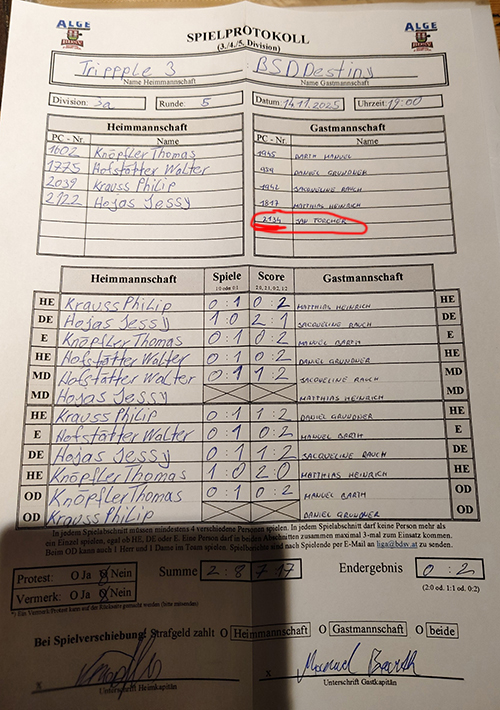 ALGE
BDSV
SPIELPROTOKOLL
ALGE
BDSV
(3./4./5. Division)
Trippple 3 : BSD Destiny
Name Heimmannschaft Name Gastmannschaft
Division: 3a Runde: 5 Datum: 14.11.2025 Uhrzeit: 19:00
Heimmannschaft Gastmannschaft
PC - Nr. Name PC - Nr. Name
1602 Knöpfler Thomas 1945 BARTH MANUEL
1775 Hofstätter Walter 939 DANIEL GRUNDNER
2039 Krauss Philip 1942 JACQUELINE RAUCH
2122 Hojas Jessy 1817 MATTHIAS HEINRICH
2134 JAN TORCHER
Heimmannschaft Spiele Score Gastmannschaft
1:0 oder 0:1 2:0, 2:1, 0:2, 1:2
HE Krauss Philip 0 : 1 0 : 2 MATTHIAS HEINRICH HE
DE Hojas Jessy 1 : 0 2 : 1 JACQUELINE RAUCH DE
E Knöpfler Thomas 0 : 1 0 : 2 MANUEL BARTH E
HE Hofstätter Walter 0 : 1 0 : 2 DANIEL GRUNDNER HE
MD Hofstätter Walter 0 : 1 1 : 2 JACQUELINE RAUCH MD
MD Hojas Jessy MATTHIAS HEINRICH MD
HE Krauss Philip 0 : 1 1 : 2 DANIEL GRUNDNER HE
E Hofstätter Walter 0 : 1 0 : 2 MANUEL BARTH E
DE Hojas Jessy 0 : 1 1 : 2 JACQUELINE RAUCH DE
HE Knöpfler Thomas 1 : 0 2 : 0 MATTHIAS HEINRICH HE
OD Knöpfler Thomas 0 : 1 0 : 2 MANUEL BARTH OD
OD Krauss Philip DANIEL GRUNDNER OD
In jedem Spielabschnitt müssen mindestens 4 verschiedene Personen spielen. In jedem Spielabschnitt darf keine Person mehr als
ein Einzel spielen, egal ob HE, DE oder E. Eine Person darf in beiden Abschnitten zusammen maximal 3-mal zum Einsatz kommen.
Beim OD kann auch 1 Herr und 1 Dame im Team spielen. Spielberichte sind nach Spielende per E-Mail an liga@bdsv.at zu senden.
Protest: O Ja O Nein Summe 2 : 8 7 : 17 Endergebnis 0 : 2
Vermerk: O Ja O Nein (2:0 od. 1:1 od. 0:2)
*) Ein Vermerk/Protest kann auf der Rückseite gemacht werden (bitte ankreuzen)
Bei Spielverschiebung! Strafgeld zahlt O Heimmannschaft O Gastmannschaft O beide
x x Manuel Barth
Unterschrift Heimkapitän Unterschrift Gastkapitän